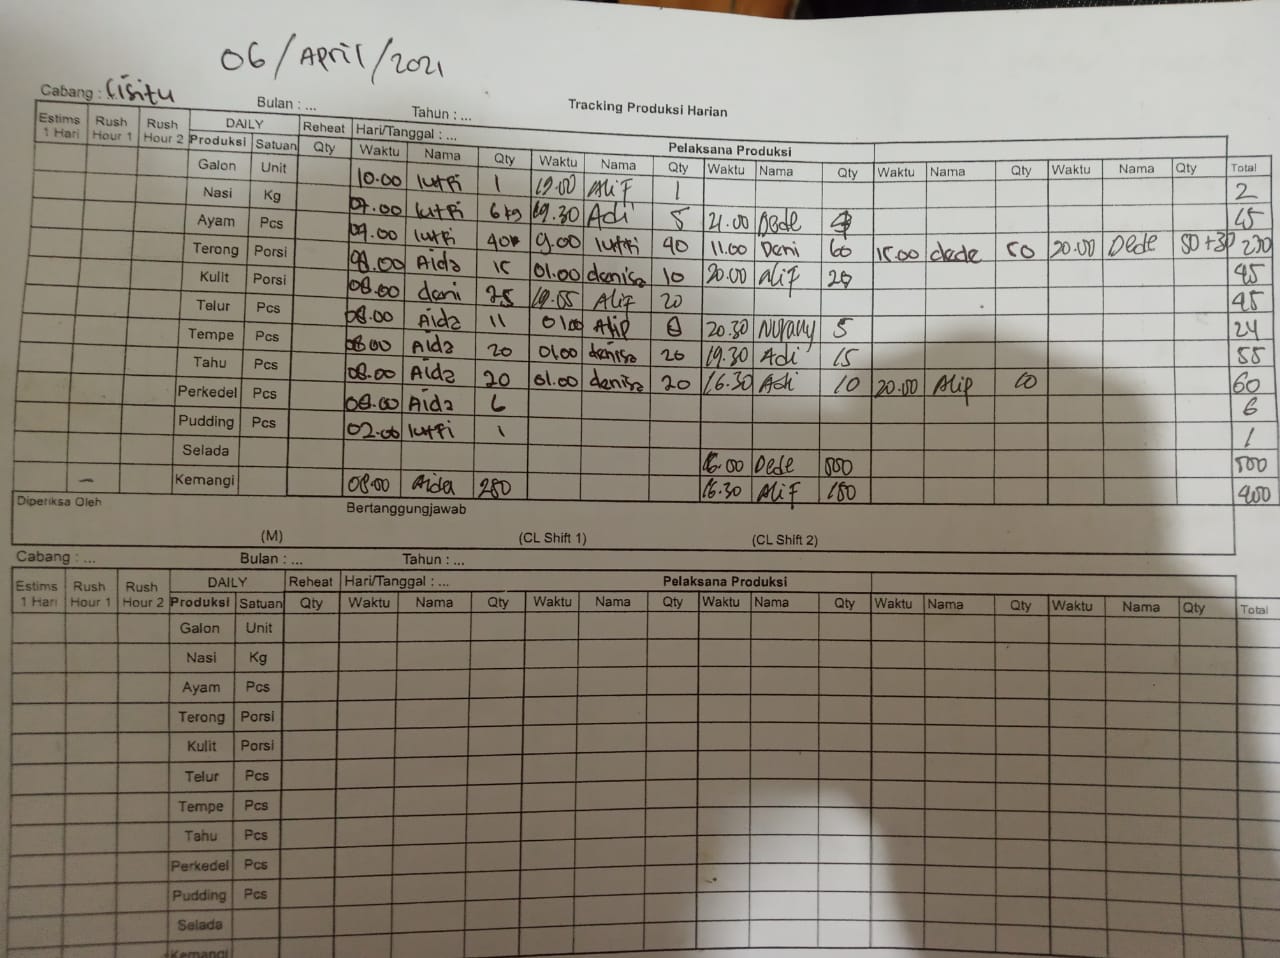 06/April/2021
Cabang : Cisitu Bulan : ... Tahun : ... Tracking Produksi Harian
Estims 1 Hari Rush Hour 1 Rush Hour 2 DAILY Reheat Hari/Tanggal : ... Pelaksana Produksi
Produksi Satuan Qty Waktu Nama Qty Waktu Nama Qty Waktu Nama Qty Waktu Nama Qty Waktu Nama Qty Total
Galon Unit 10.00 lutfi 1 19.00 Alif 1 2
Nasi Kg 07.00 lutfi 6 kg 19.30 Adi 5 21.00 Dede 4 15
Ayam Pcs 07.00 lutfi 40 9.00 lutfi 40 11.00 Dani 60 15.00 dede 50 20.00 Dede 50+30
Terong Porsi 08.00 Aida 15 01.00 danisa 10 20.00 Alif 20 45
Kulit Porsi 08.00 dani 25 19.55 Alif 20 45
Telur Pcs 08.00 Aida 11 01.00 Alip 8 20.30 5 24
Tempe Pcs 08.00 Aida 20 01.00 danisa 20 19.30 Adi 15 55
Tahu Pcs 08.00 Aida 20 01.00 danisa 20 16.30 Adi 10 20.00 Alip 10 60
Perkedel Pcs 08.00 Aida 6 6
Pudding Pcs 02.00 lutfi 1 1
Selada 16.00 Dede 500 500
Kemangi - 08.00 Aida 250 16.30 Alif 150 400
Diperiksa Oleh Bertanggungjawab
(M) (CL Shift 1) (CL Shift 2)
Cabang : ... Bulan : ... Tahun : ...
Estims 1 Hari Rush Hour 1 Rush Hour 2 DAILY Reheat Hari/Tanggal : ... Pelaksana Produksi
Produksi Satuan Qty Waktu Nama Qty Waktu Nama Qty Waktu Nama Qty Waktu Nama Qty Waktu Nama Qty Total
Galon Unit
Nasi Kg
Ayam Pcs
Terong Porsi
Kulit Porsi
Telur Pcs
Tempe Pcs
Tahu Pcs
Perkedel Pcs
Pudding Pcs
Selada
Kemangi